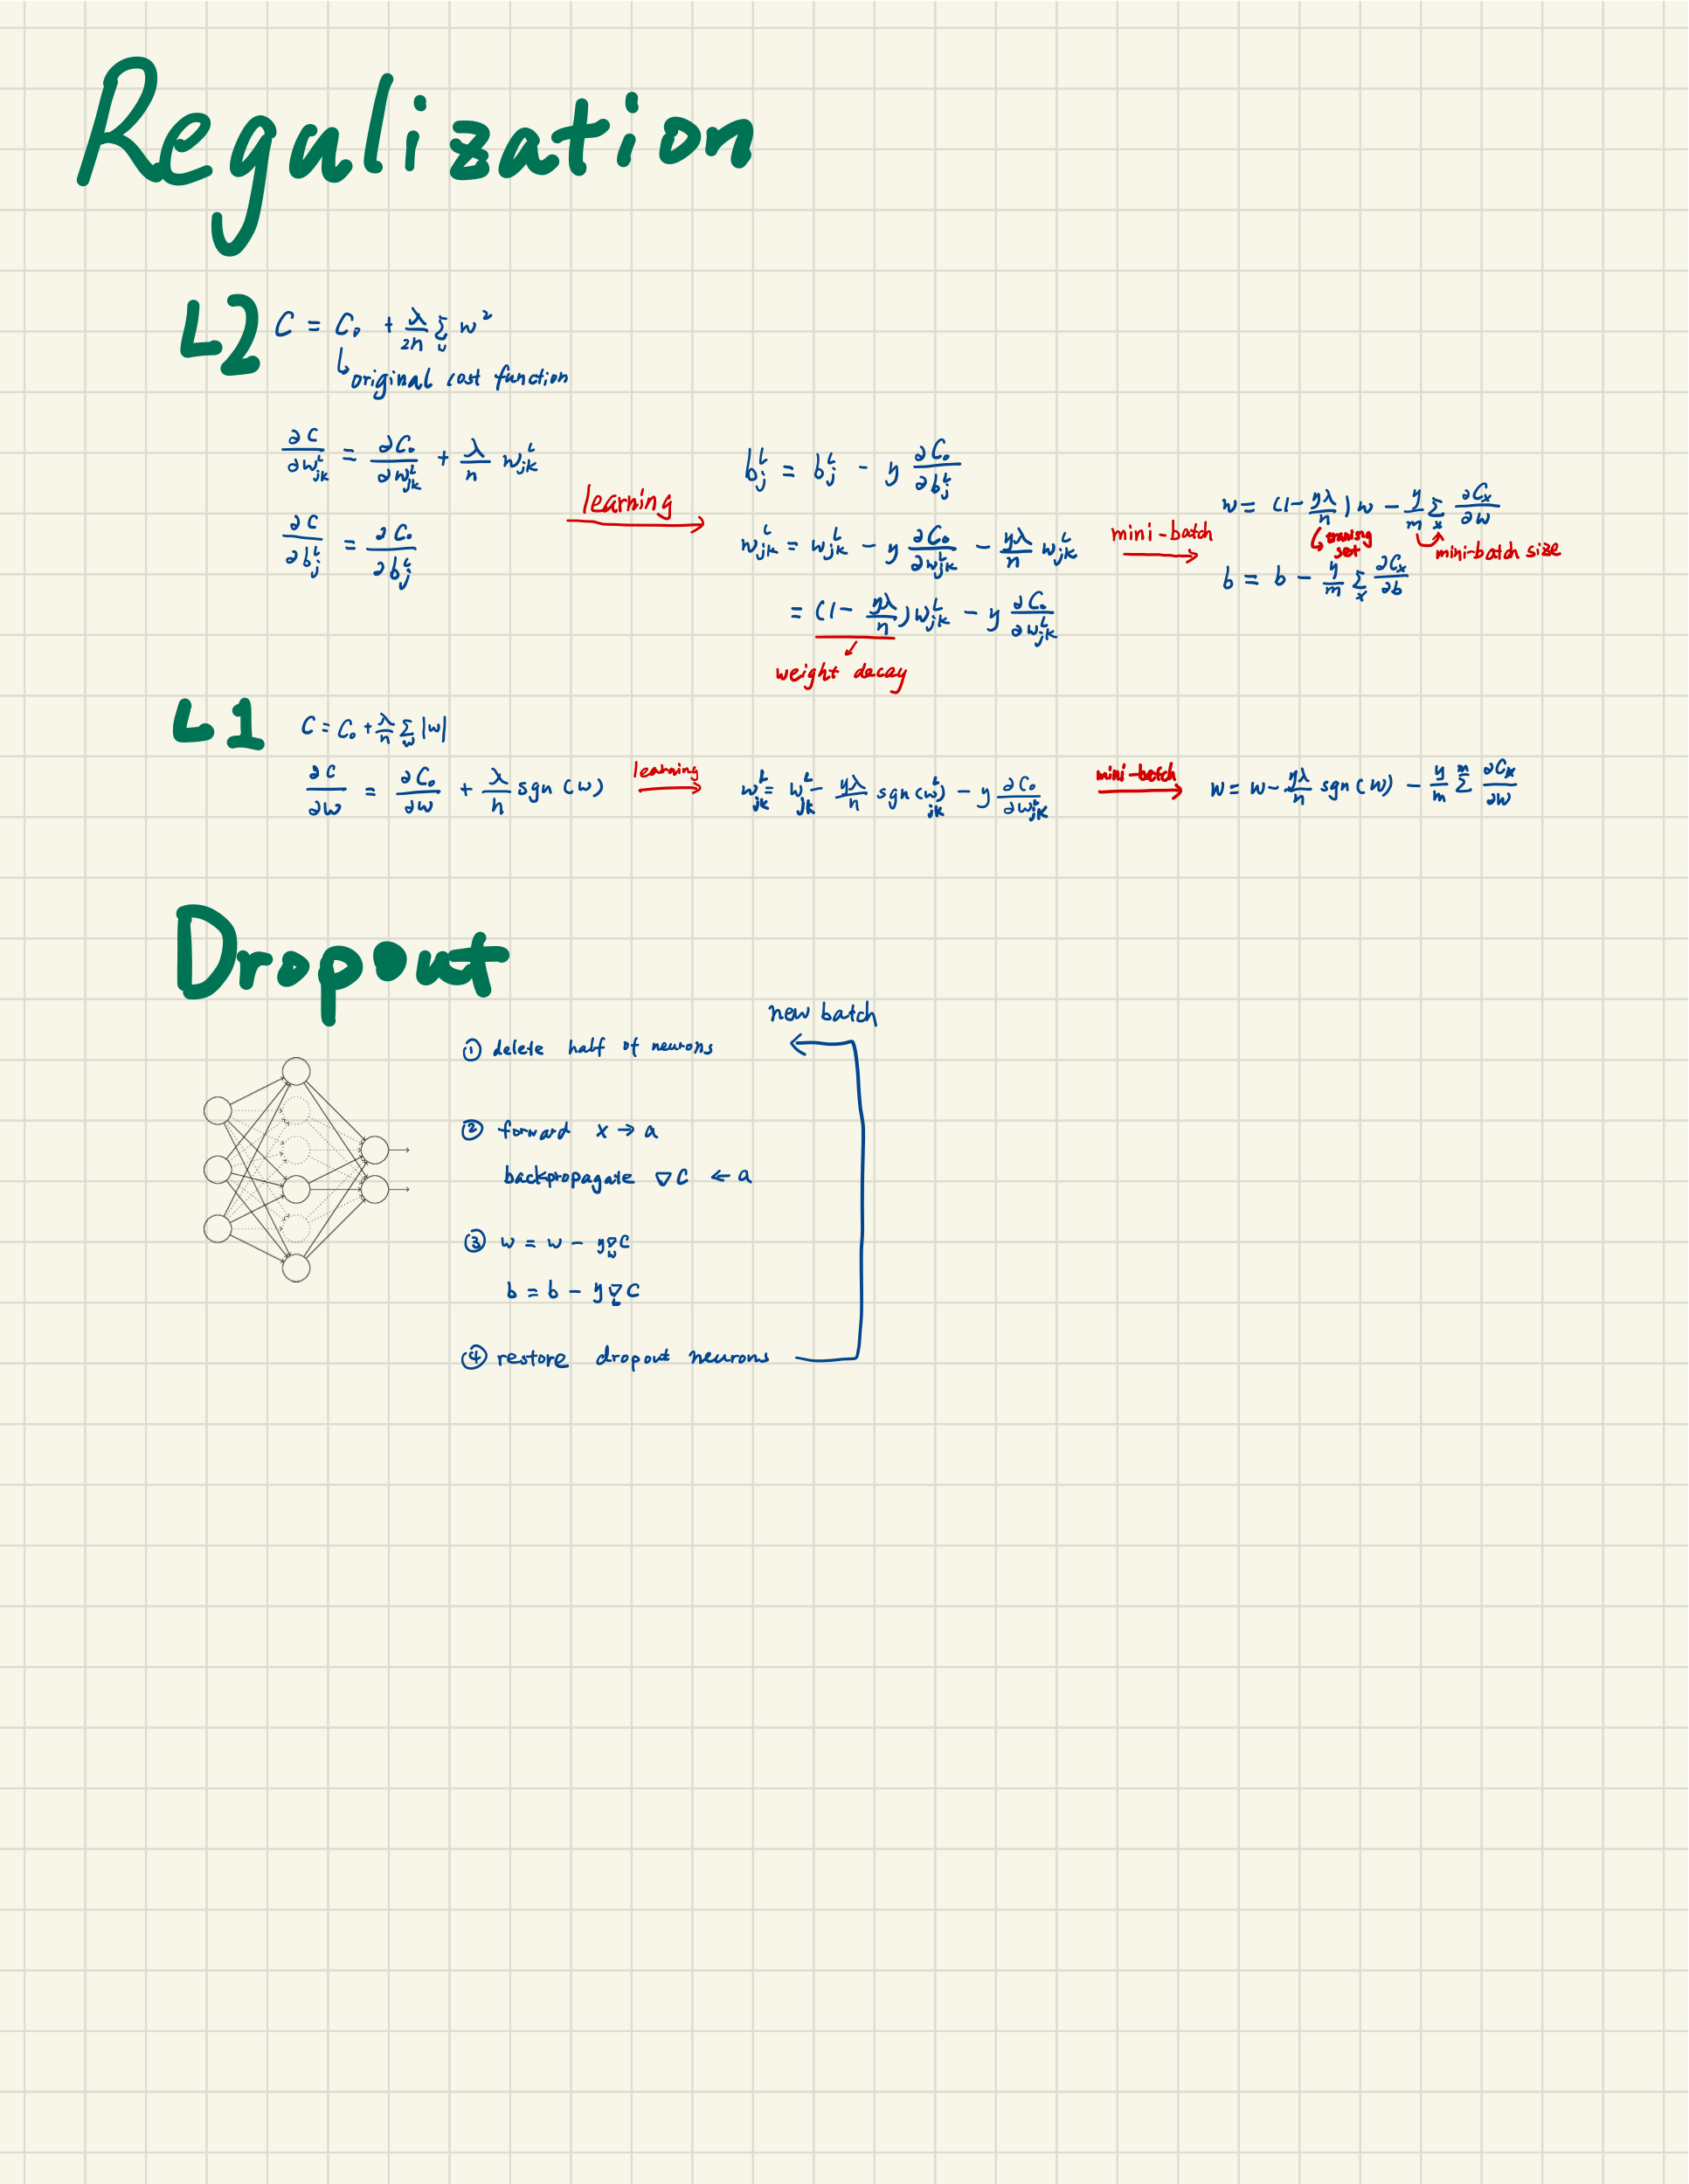 Regulization
L2 C = C₀ + λ/2n Σ_w w²
original cost function
∂C/∂w_jk^L = ∂C₀/∂w_jk^L + λ/n w_jk^L
∂C/∂b_j^L = ∂C₀/∂b_j^L
learning
b_j^L = b_j^L - η ∂C₀/∂b_j^L
w_jk^L = w_jk^L - η ∂C₀/∂w_jk^L - ηλ/n w_jk^L
= (1 - ηλ/n) w_jk^L - η ∂C₀/∂w_jk^L
weight decay
mini-batch
w = (1 - ηλ/n) w - η/m Σ_x ∂C_x/∂w
training set
mini-batch size
b = b - η/m Σ_x ∂C_x/∂b
L1 C = C₀ + λ/n Σ_w |w|
∂C/∂w = ∂C₀/∂w + λ/n sgn(w)
learning
w_jk^L = w_jk^L - ηλ/n sgn(w_jk^L) - η ∂C₀/∂w_jk^L
mini-batch
w = w - ηλ/n sgn(w) - η/m Σ^m ∂C_x/∂w
Dropout
new batch
① delete half of neurons
② forward x → a
backpropagate ∇C ← a
③ w = w - η∇_w C
b = b - η∇_b C
④ restore dropout neurons